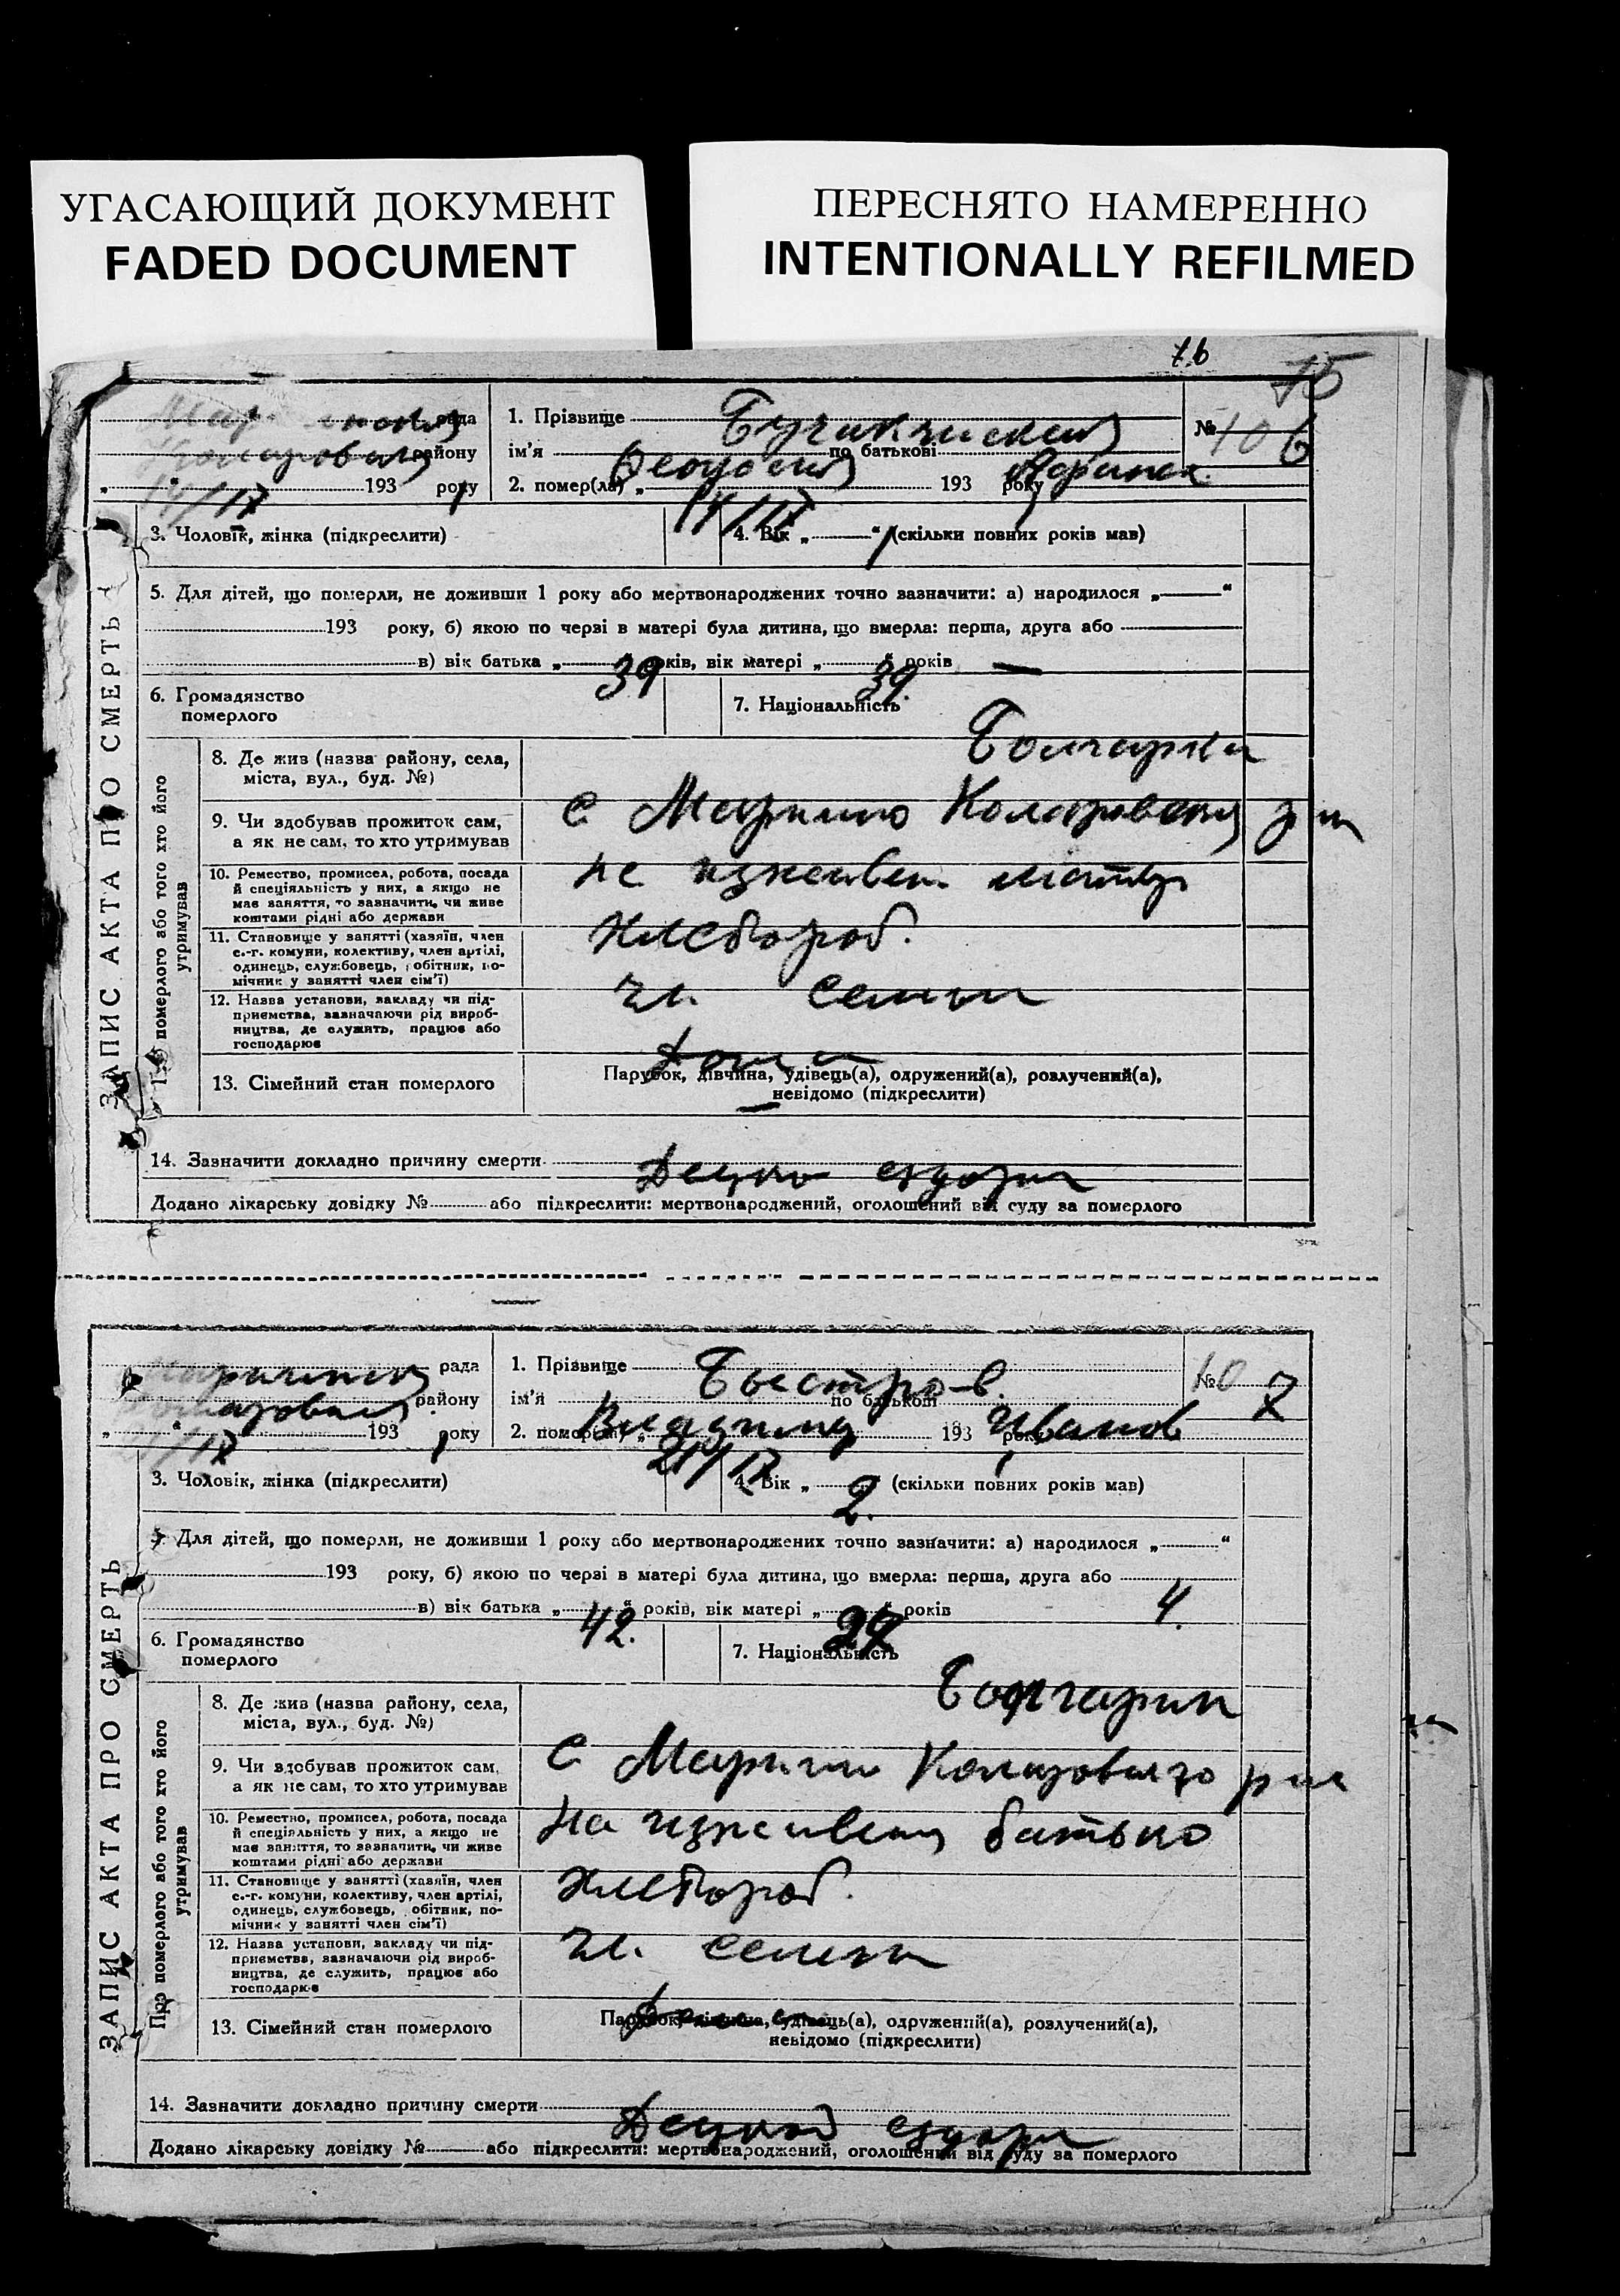 УГАСАЮЩИЙ ДОКУМЕНТ
FADED DOCUMENT
ПЕРЕСНЯТО НАМЕРЕННО
INTENTIONALLY REFILMED
76
75
ЗАПИС АКТА ПРО СМЕРТЬ
рада
району
14/IV 193 року
1. Прізвище
ім'я по батькові
2. помер(ла) „ 14/IV 193 року
№ 106
3. Чоловік, жінка (підкреслити)
4. Вік „ 1 “ (скільки повних років мав)
5. Для дітей, що померли, не доживши 1 року або мертвонароджених точно зазначити: а) народилося „ “
193 року, б) якою по черзі в матері була дитина, що вмерла: перша, друга або
в) вік батька „ 39 “ років, вік матері „ 39 “ років —
6. Громадянство померлого
7. Національність Болгарка
Про померлого або того хто його утримував
8. Де жив (назва району, села,
міста, вул., буд. №)
с Марино
9. Чи здобував прожиток сам,
а як не сам, то хто утримував
10. Ремество, промисел, робота, посада
й спеціяльність у них, а якщо не
має заняття, то зазначити, чи живе
коштами рідні або держави
Хлебороб.
11. Становище у занятті (хазяїн, член
с.-г. комуни, колективу, член артілі,
одинець, службовець, робітник, по-
мічник у занятті член сім'ї)
чл. семьи
12. Назва установи, закладу чи під-
приємства, зазначаючи рід вироб-
ництва, де служить, працює або
господарює
13. Сімейний стан померлого
Парубок, дівчина, удівець(а), одружений(а), розлучений(а),
невідомо (підкреслити)
14. Зазначити докладно причину смерти
Додано лікарську довідку № або підкреслити: мертвонароджений, оголошений від суду за померлого
ЗАПИС АКТА ПРО СМЕРТЬ
рада
району
21/IV 193 року
1. Прізвище Быстров.
ім'я Владимир по батькові Иванов
2. помер(ла) „ 21/IV 193 року
№ 107
3. Чоловік, жінка (підкреслити)
4. Вік „ 2. (скільки повних років мав)
5. Для дітей, що померли, не доживши 1 року або мертвонароджених точно зазначити: а) народилося „ “
193 року, б) якою по черзі в матері була дитина, що вмерла: перша, друга або 4.
в) вік батька „ 42. “ років, вік матері „ “ років
6. Громадянство померлого
7. Національність Болгарин
Про померлого або того хто його утримував
8. Де жив (назва району, села,
міста, вул., буд. №)
с Марино
9. Чи здобував прожиток сам,
а як не сам, то хто утримував
На батько
10. Ремество, промисел, робота, посада
й спеціяльність у них, а якщо не
має заняття, то зазначити, чи живе
коштами рідні або держави
Хлебороб.
11. Становище у занятті (хазяїн, член
с.-г. комуни, колективу, член артілі,
одинець, службовець, робітник, по-
мічник у занятті член сім'ї)
чл. семьи
12. Назва установи, закладу чи під-
приємства, зазначаючи рід вироб-
ництва, де служить, працює або
господарює
13. Сімейний стан померлого
Парубок, дівчина, удівець(а), одружений(а), розлучений(а),
невідомо (підкреслити)
14. Зазначити докладно причину смерти
Додано лікарську довідку № або підкреслити: мертвонароджений, оголошений від суду за померлого